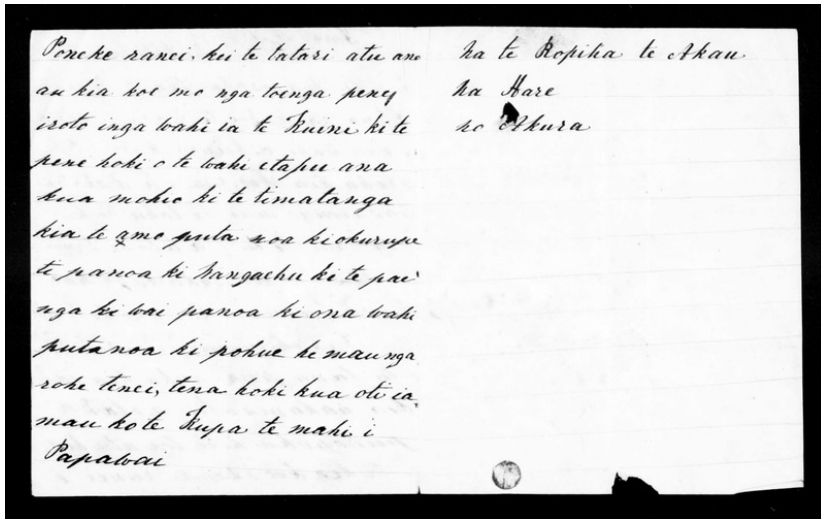 Poneke nanei. kei te tatari atu ano
au kia koe mo nga toenga peney
iroto inga wahi ia te Kuini ki te
pene hoki o te wahi etapu ana
kua mohio ki te timatanga
kia te amo puta noa kiokurupe
te panoa ki hangaehu ki te pai
nga ki wai panoa ki ona wahi
putanoa ki pohue he maunga
rohe tenei, tena hoki kua oti ia
mau ko te Kupa te mahi i
Papawai
na te Ropiha te Akau
na Hare
no Akura